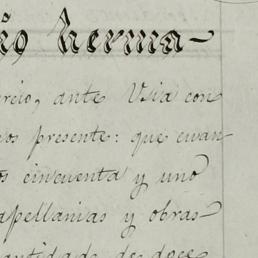 ño herma-
rcio, ante Usia con
os presente: que
s cincuenta y uno
apellanias y obras
antidad de doce